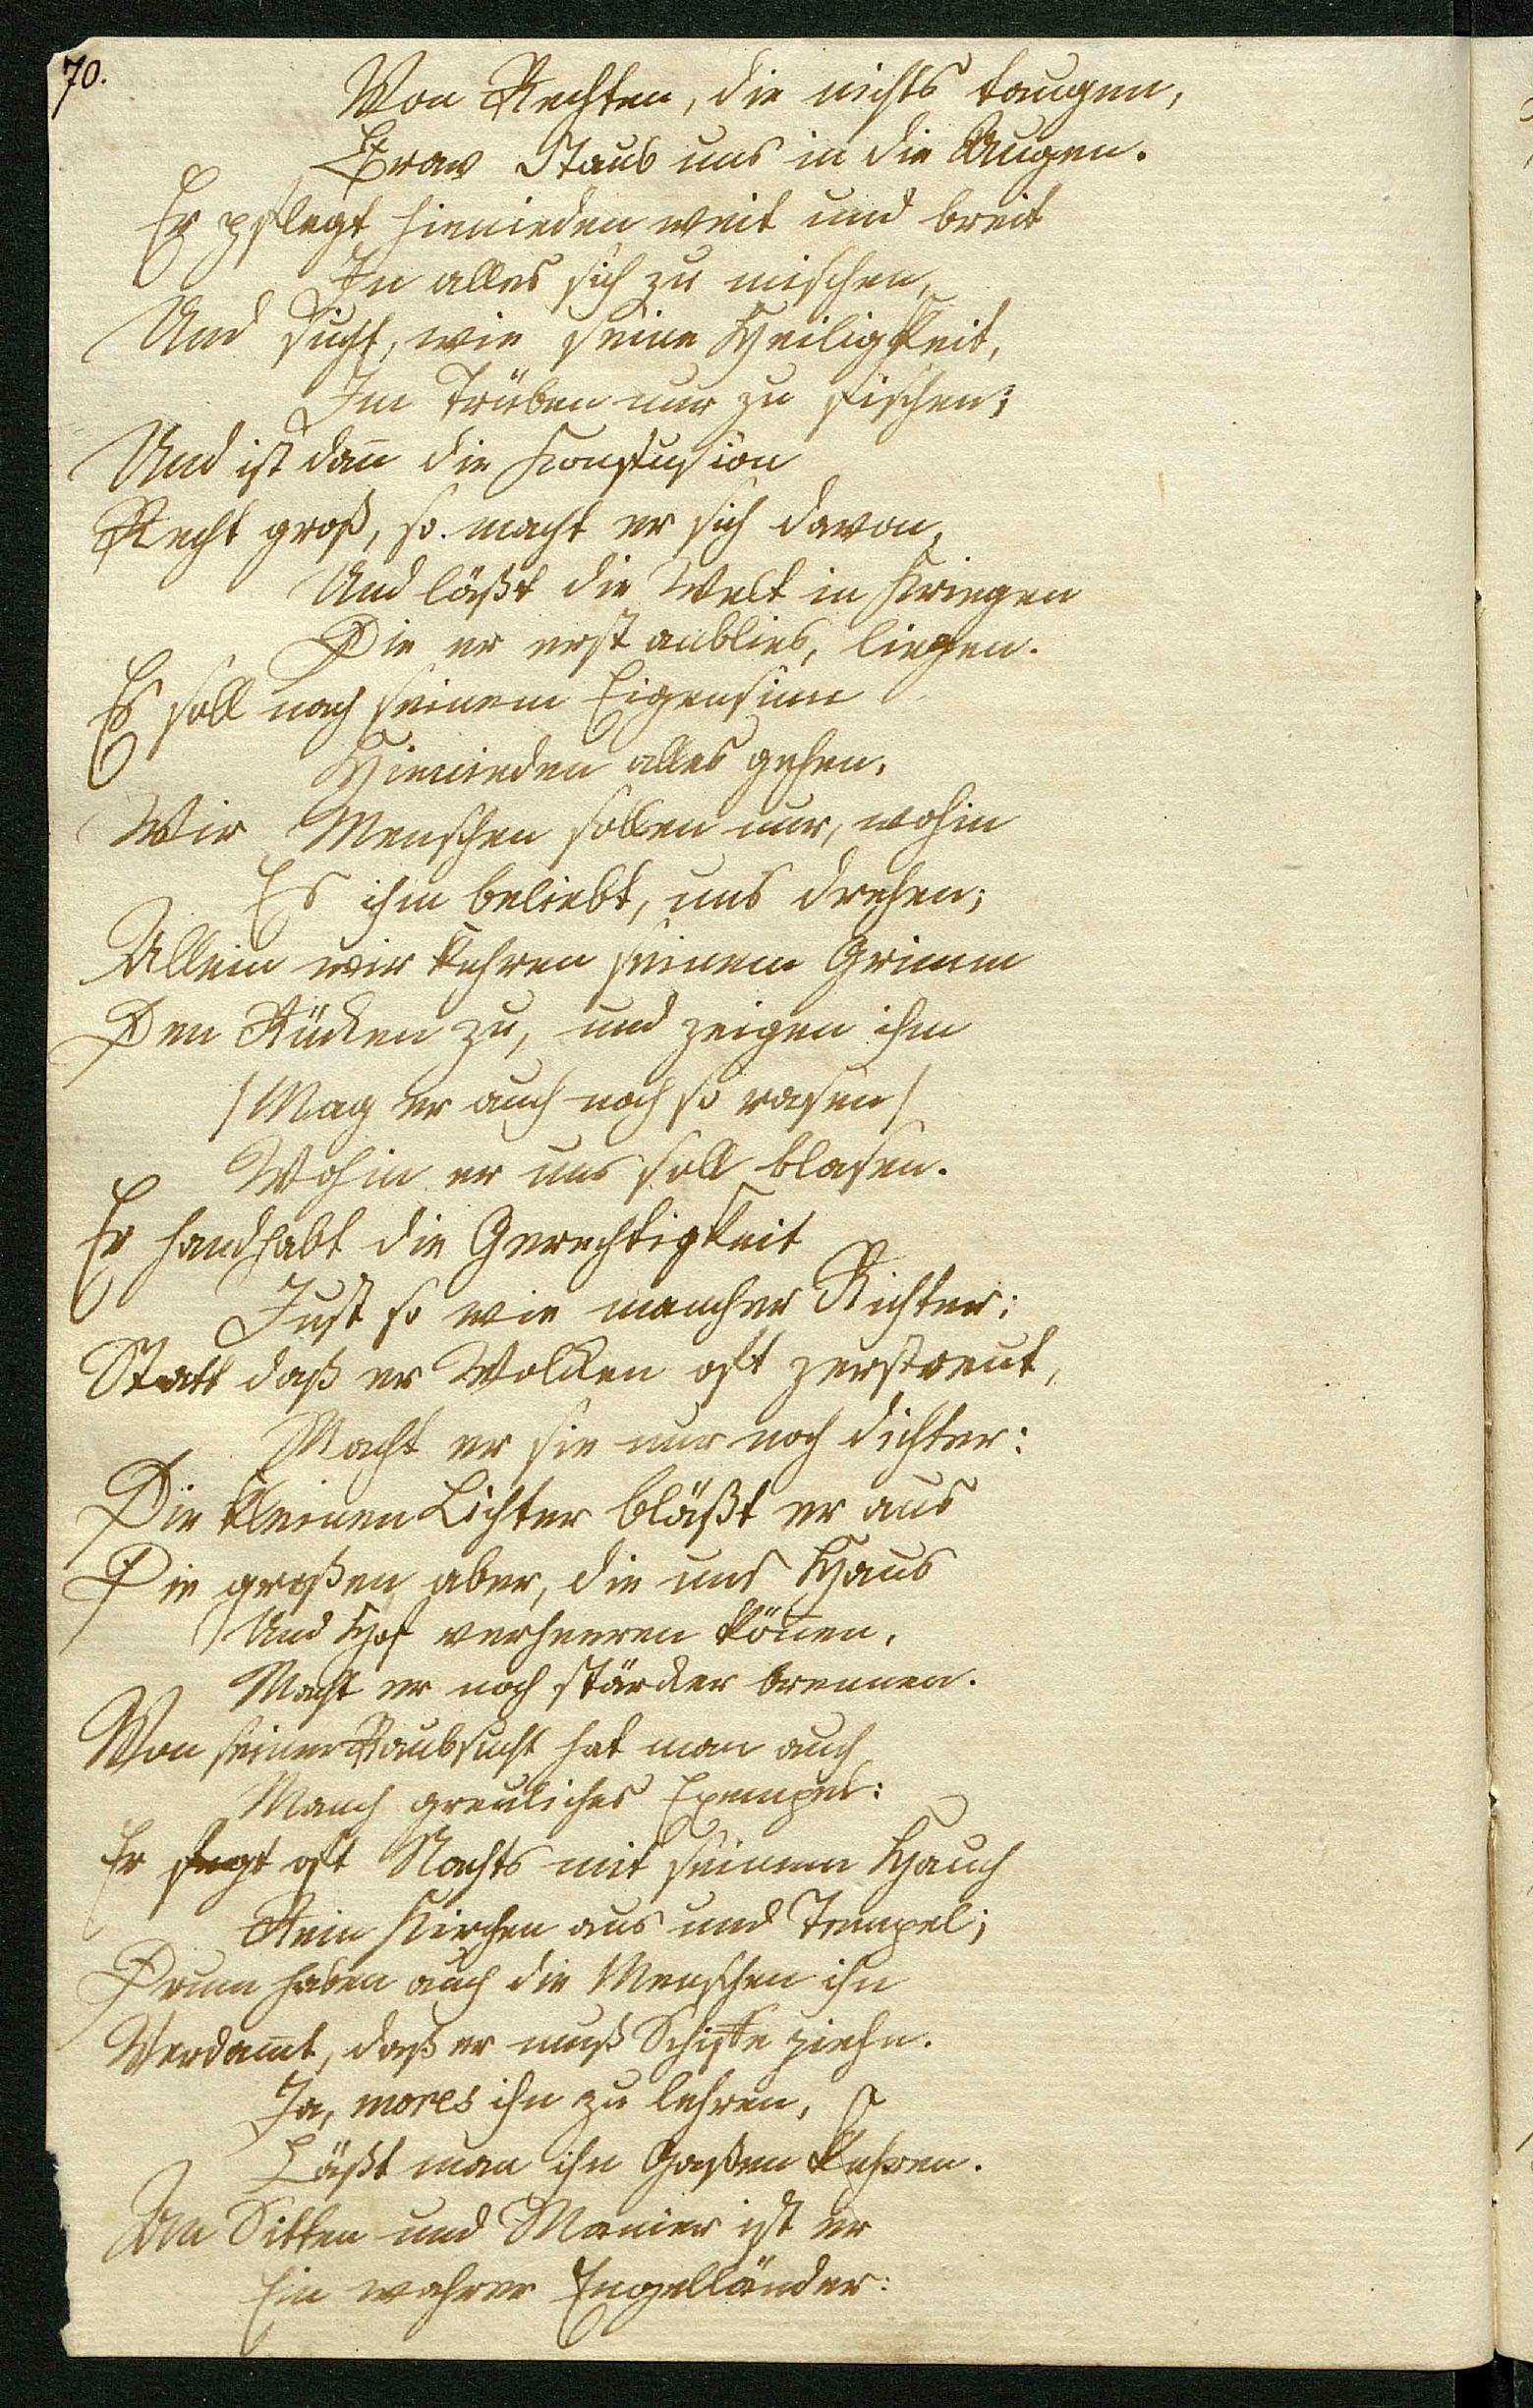 70.
Von Rechten, die nichts taugen,
Brav Staub uns in die Augen.
Er pflegt hienieden weit und breit
In alles sich zu mischen,
Und sucht, wie seine Heiligkeit,
Im Trüben nur zu fischen;
Und ist dañ die Konfusion
Recht groß, so macht er sich davon,
Und läßt die Welt in Kriegen
Die er erst anblies, liegen.
Es soll nach seinem Eigensinn
Hienieden alles gehen,
Wir Menschen sollen nur, wohin
Es ihm beliebt, uns drehen;
Allein wir kehren seinem Grimm
Den Rücken zu, und zeigen ihm
/Mag er auch noch so rasen/
Wohin er uns soll blasen.
Er handhabt die Gerechtigkeit
Just so wie mancher Richter:
Statt daß er Wolcken oft zerstreut,
Macht er sie nur noch dichter:
Die kleinen Lichter bläßt er aus
Die großen aber, die uns Haus
Und Hof verheeren köñen,
Macht er noch stärcker brennen.
Von seiner Raubsucht hat man auch
Manch greuliches Exempel:
Er fegt oft Nachts mit seinem Hauch
Rein Kirchen aus und Tempel;
Drum haben auch die Menschen ihn
Verdam̃t, daß er muß Schiffe ziehn.
Ja, mores ihn zu lehren,
Läßt man ihn Gaßen kehren.
An Sitten und Manier ist er
Ein wahrer Engelländer: